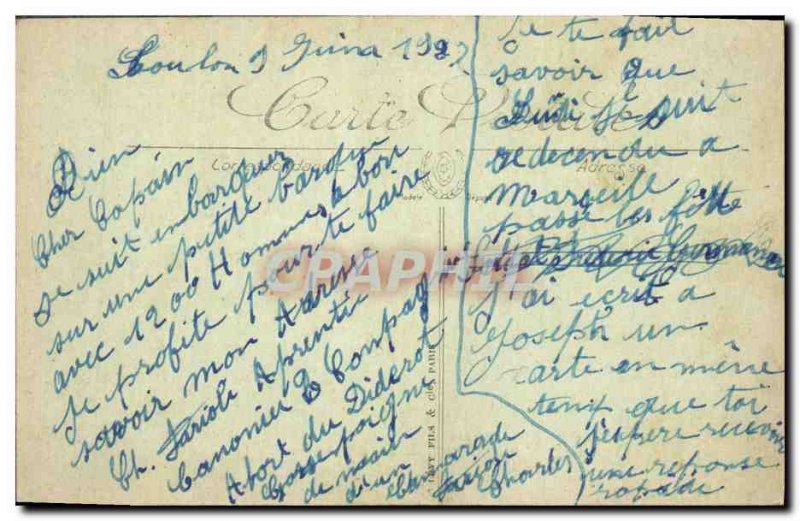 Toulon 9 Juin 192
Carte Postale
Correspondance
Adresse
Rien
Cher Copain
Je suit enbarquer
sur une petite barque
avec 1200 Hommes a bor
Je profite pour te faire
savoir mon Adresse
Ch. Farioli Aprentie
Canonier 3 Compag
Abort du Diderot
Grosse poigne
de main
d'un Camarade
Charles
LEVY FILS & Cie PARIS
CPARHIL
Je te fait
savoir que
je suit
redecendu a
Marseille
passé les fête
J'ai ecrit a
Joseph un
carte en même
temp que toi
J'espere recevoir
une reponse
rapade